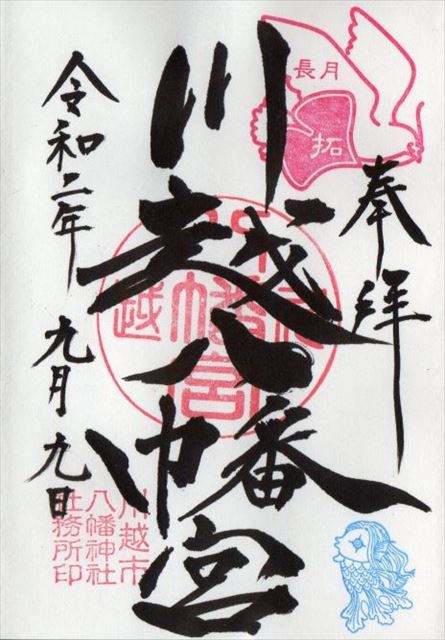 奉拝
長月
拓
川越八幡宮
令和二年
九月九日
川越市
八幡神社
社務所印